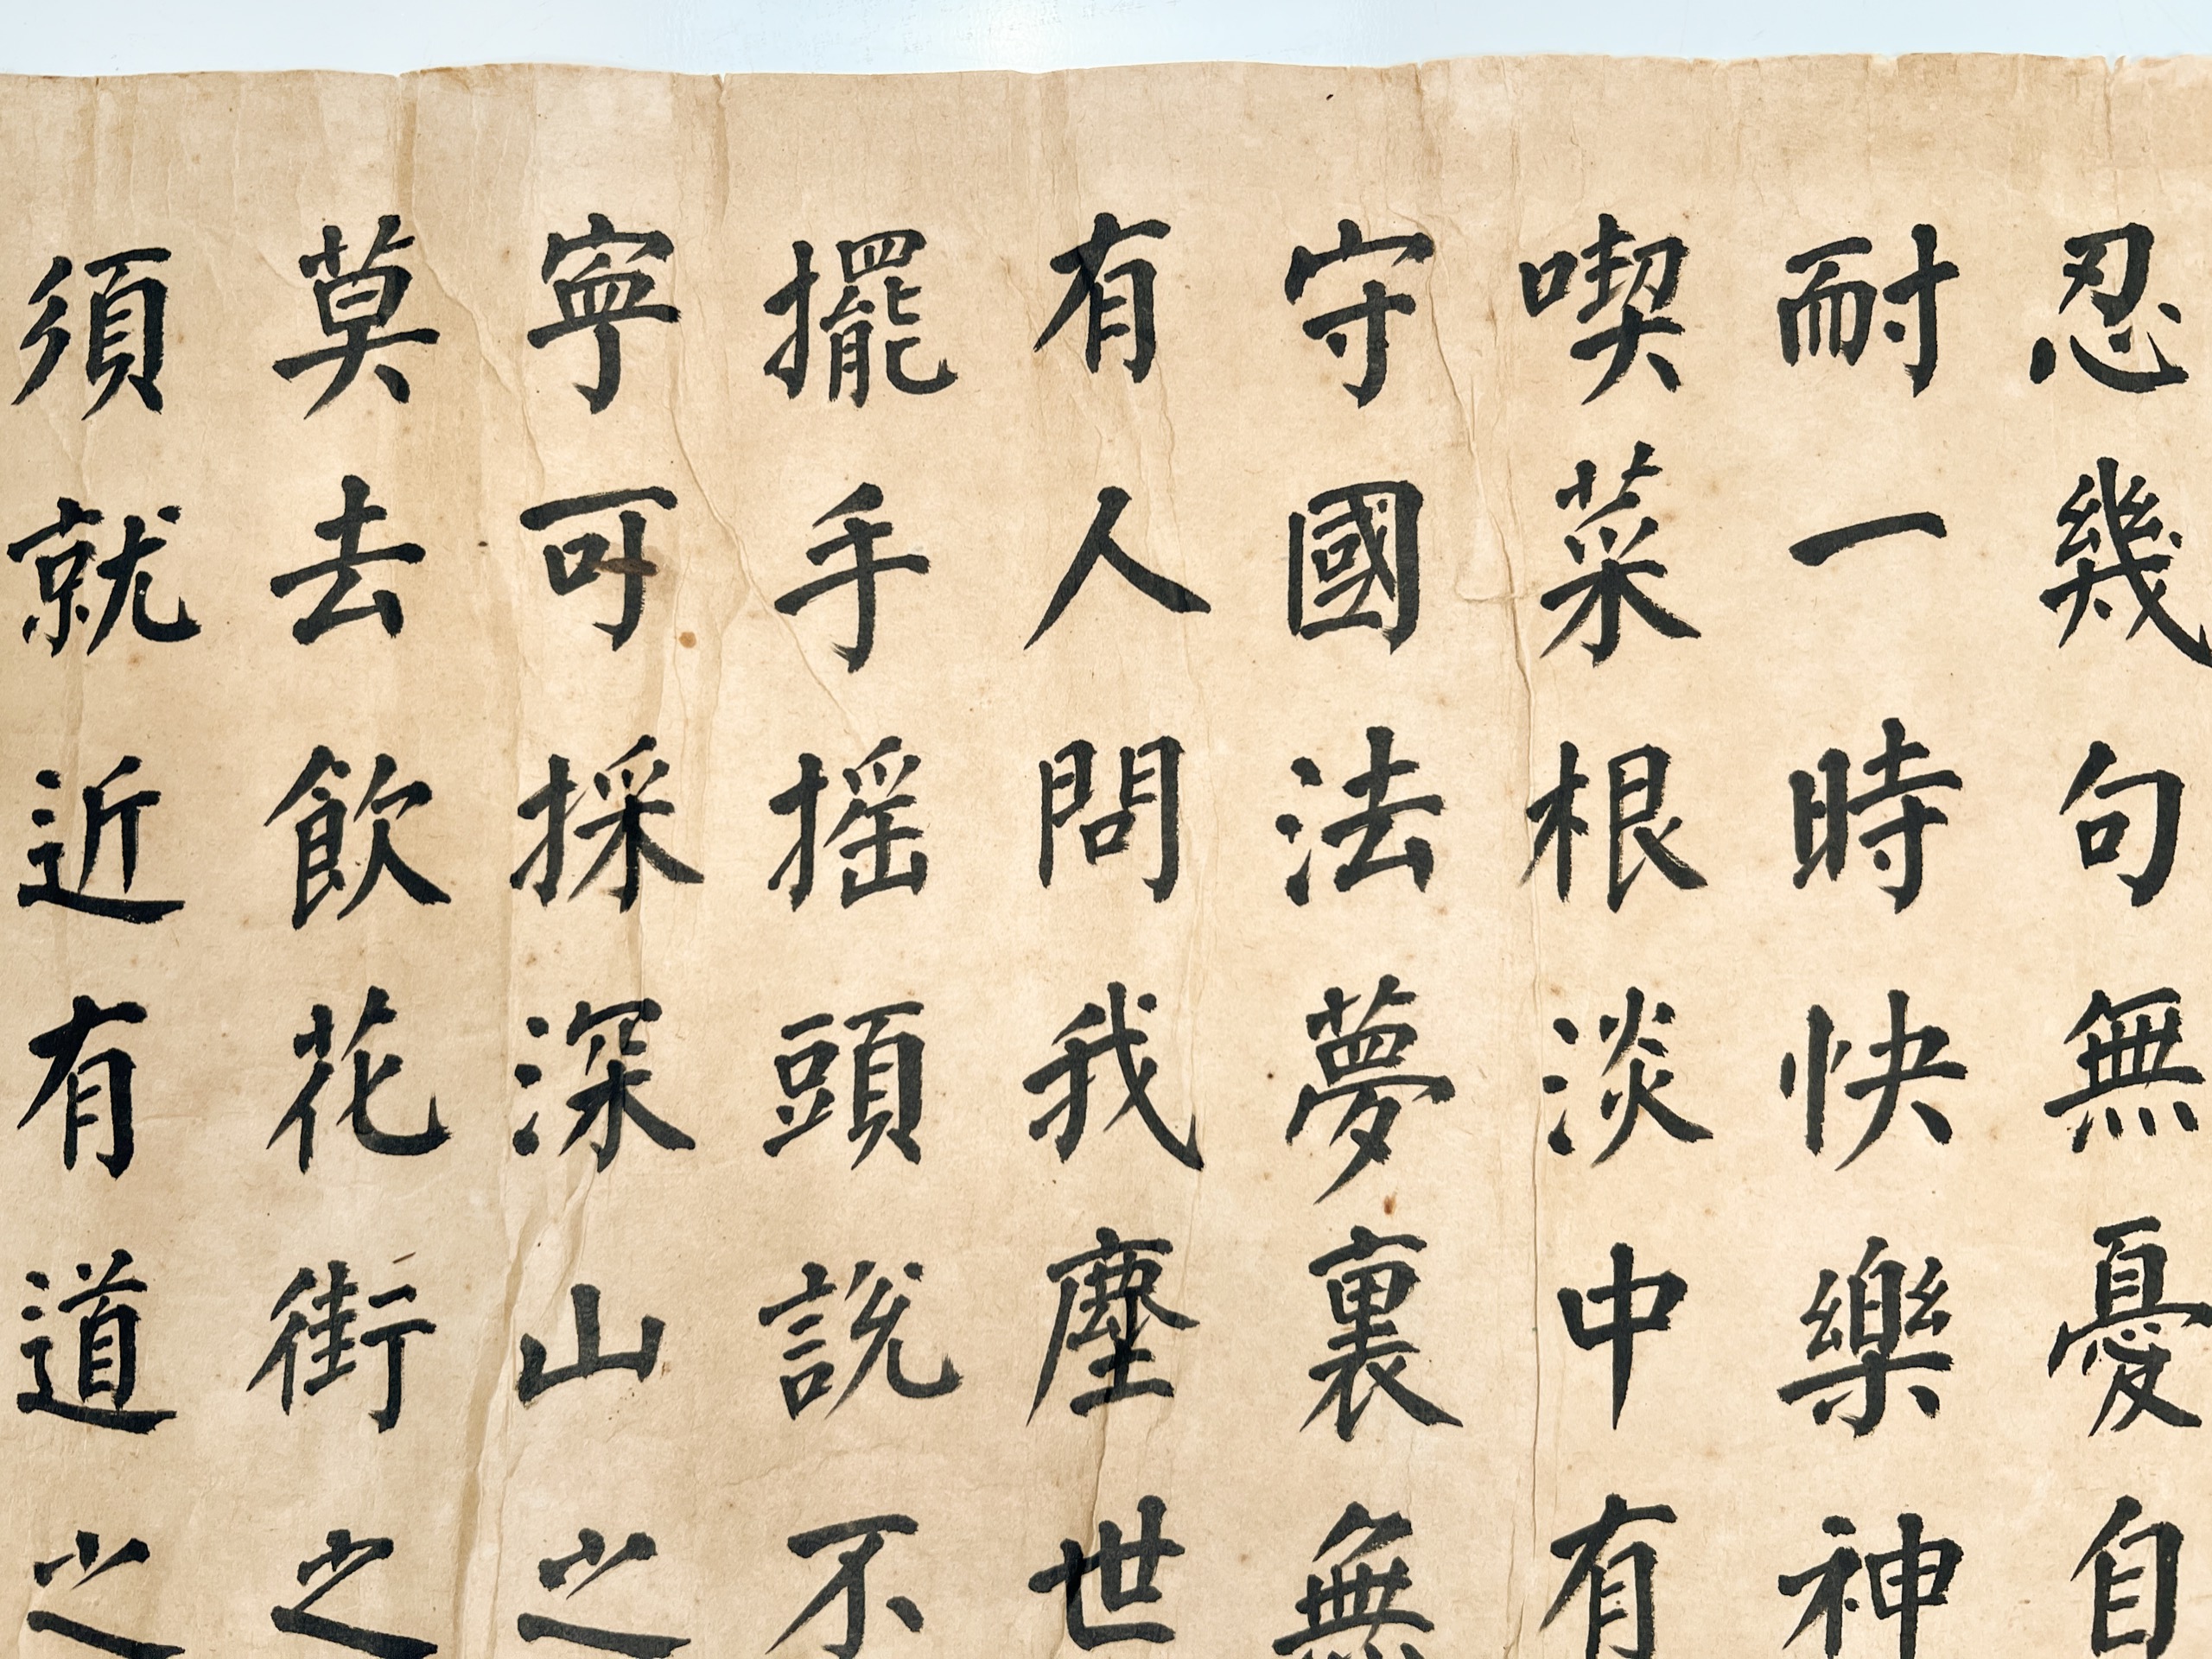 忍幾句無憂自
耐一時快樂神
喫菜根淡中有
守國法夢裏無
有人問我塵世
擺手摇頭説不
寧可採深山之
莫去飲花街之
須就近有道之